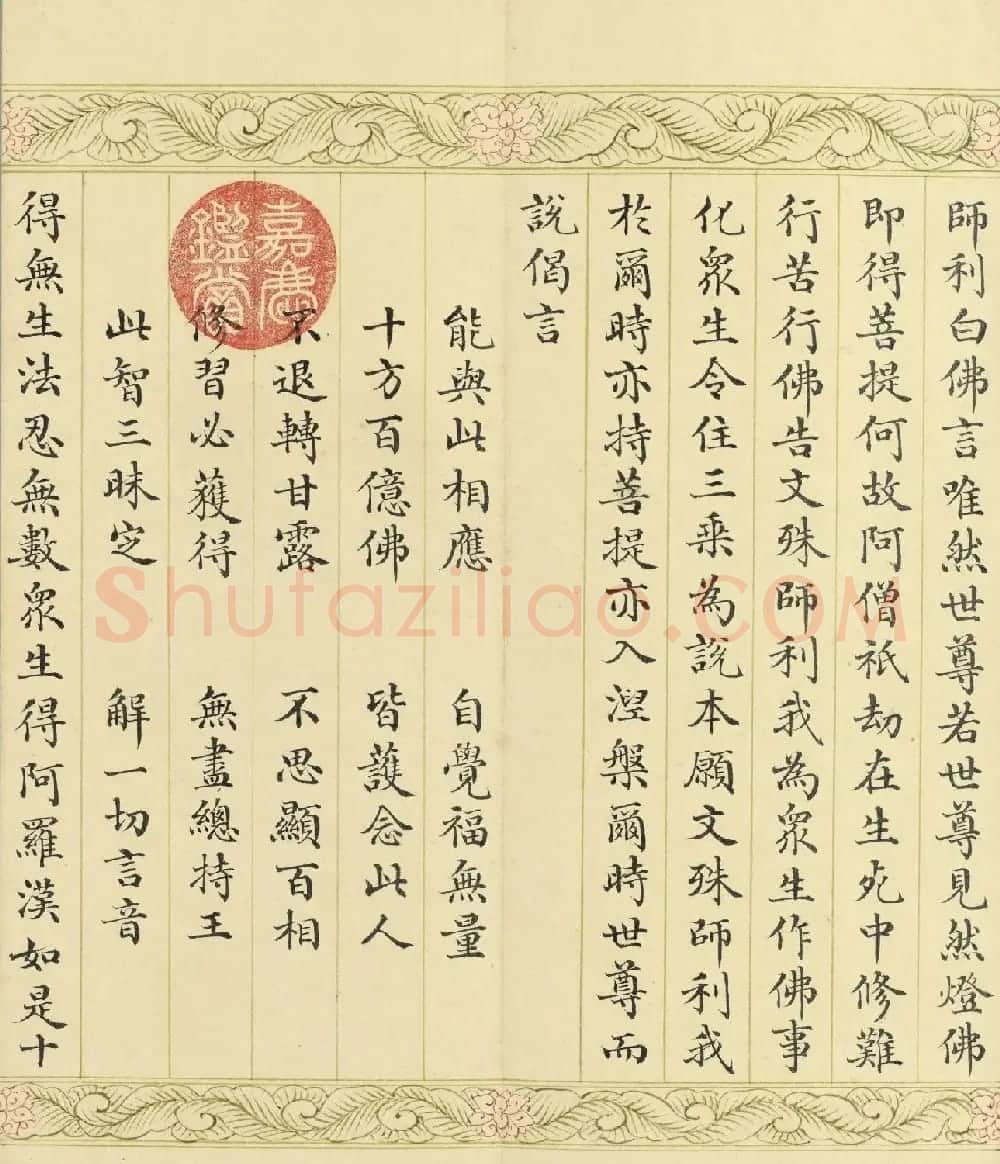 師利白佛言唯然世尊若世尊見然燈佛
即得菩提何故阿僧祇劫在生死中修難
行苦行佛告文殊師利我為眾生作佛事
化眾生令住三乘為說本願文殊師利我
於爾時亦持菩提亦入涅槃爾時世尊而
說偈言
能與此相應 自覺福無量
十方百億佛 皆護念此人
不退轉甘露 不思顯百相
修習必獲得 無盡總持王
此智三昧定 解一切言音
得無生法忍無數眾生得阿羅漢如是十
嘉慶鑑賞
Shufaziliao.COM